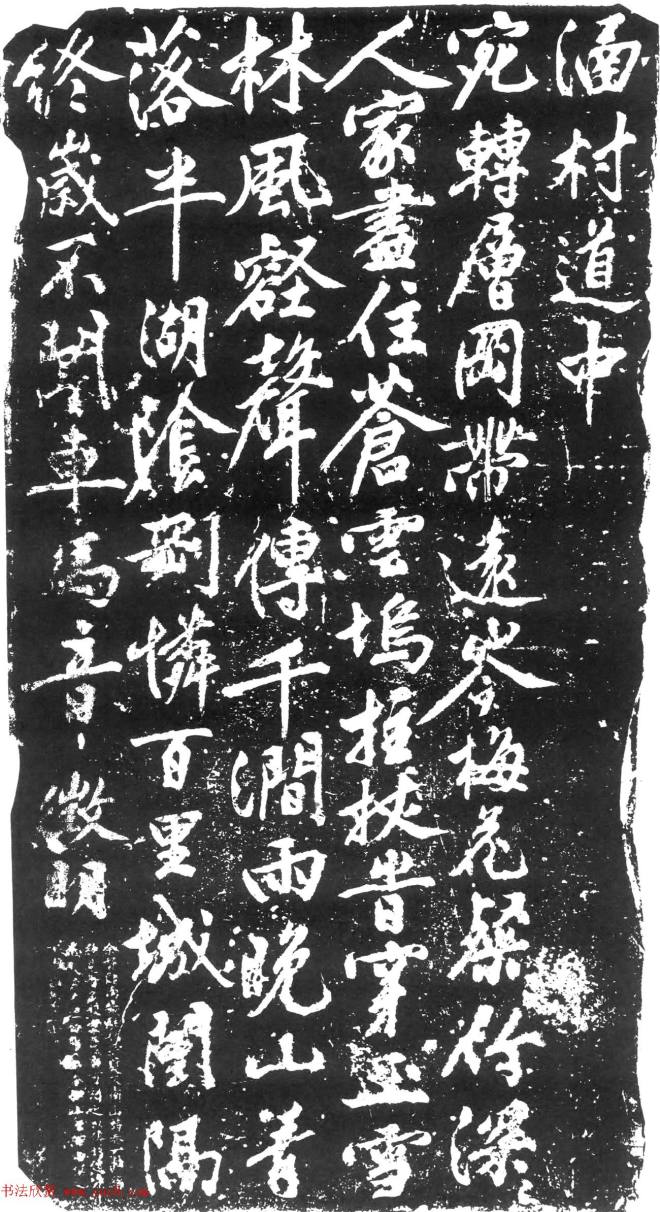 涵村道中
宛轉層岡帶遠岑梅花粲〻竹深〻
人家盡住蒼雲塢拄杖旹穿玉雪
林風壑聲傳千澗雨晚山青
落半湖陰剛憐百里城闉隔
終歲不聞車馬音徵明
书法欣赏